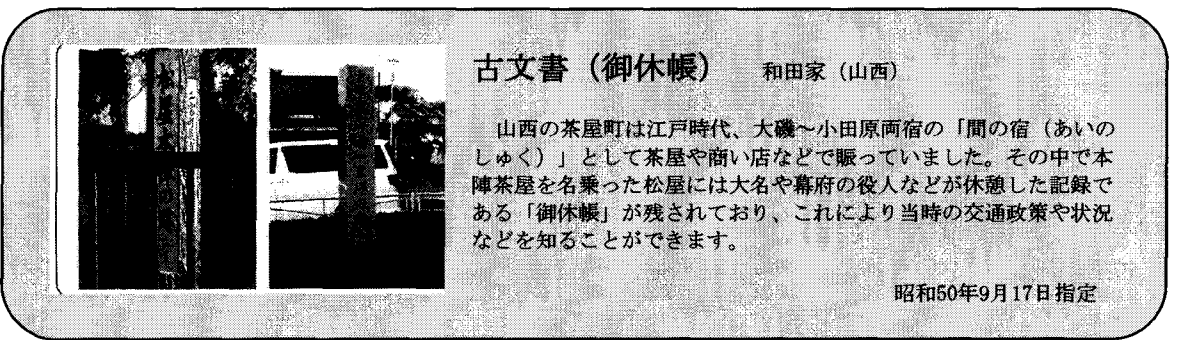 古文書（御休帳）　和田家（山西）
山西の茶屋町は江戸時代、大磯～小田原両宿の「間の宿（あいの
しゅく）」として茶屋や商い店などで賑っていました。その中で本
陣茶屋を名乗った松屋には大名や幕府の役人などが休憩した記録で
ある「御休帳」が残されており、これにより当時の交通政策や状況
などを知ることができます。
昭和50年9月17日指定